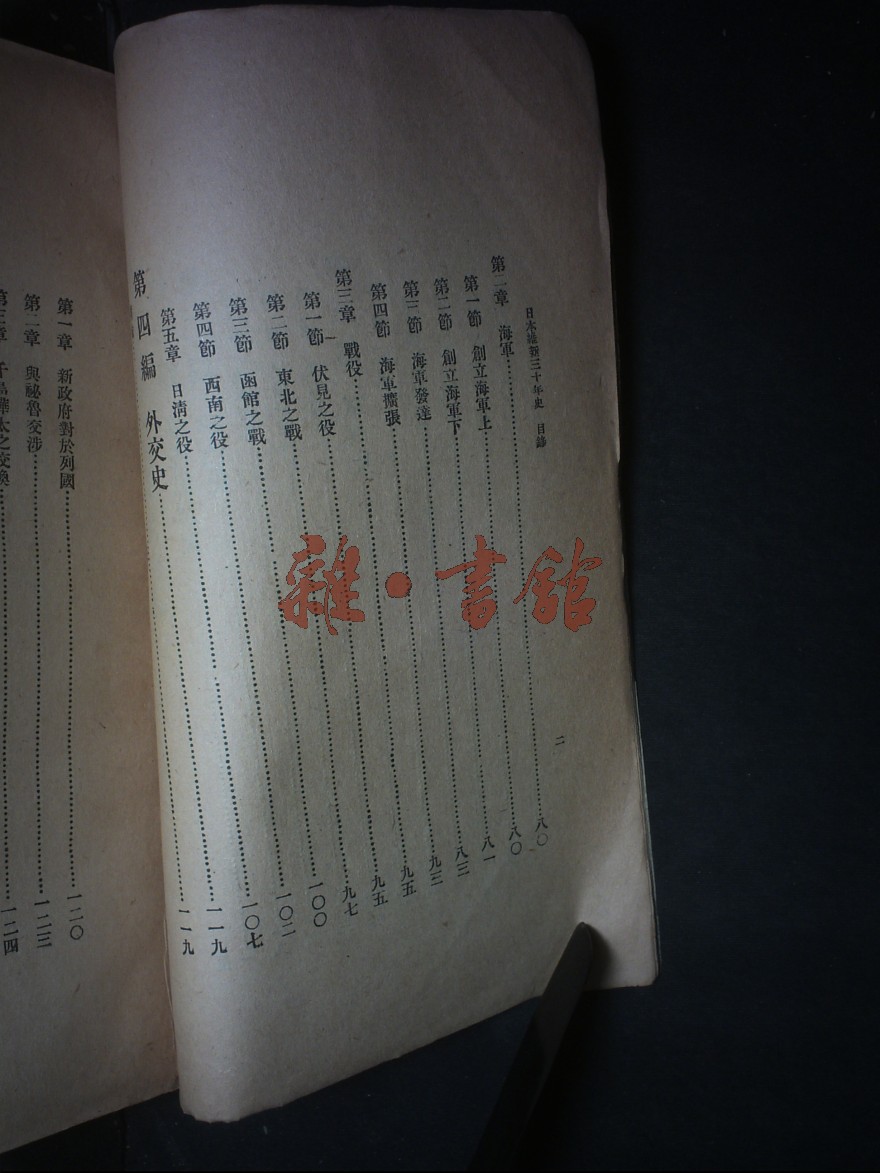 日本維新三十年史 目錄 二
第二章 海軍……八〇
第一節 創立海軍上……八〇
第二節 創立海軍下……八一
第三節 海軍發達……八三
第四節 海軍擴張……九三
第三章 戰役……九五
第一節 伏見之役……九五
第二節 東北之戰……九七
第三節 函館之戰……一〇〇
第四節 西南之役……一〇二
第五章 日清之役……一〇七
第四編 外交史……一一九
一一九
第一章 新政府對於列國……一二〇
第二章 與祕魯交涉……一二三
第三章 千島樺太之交換……一二四
雜·書館